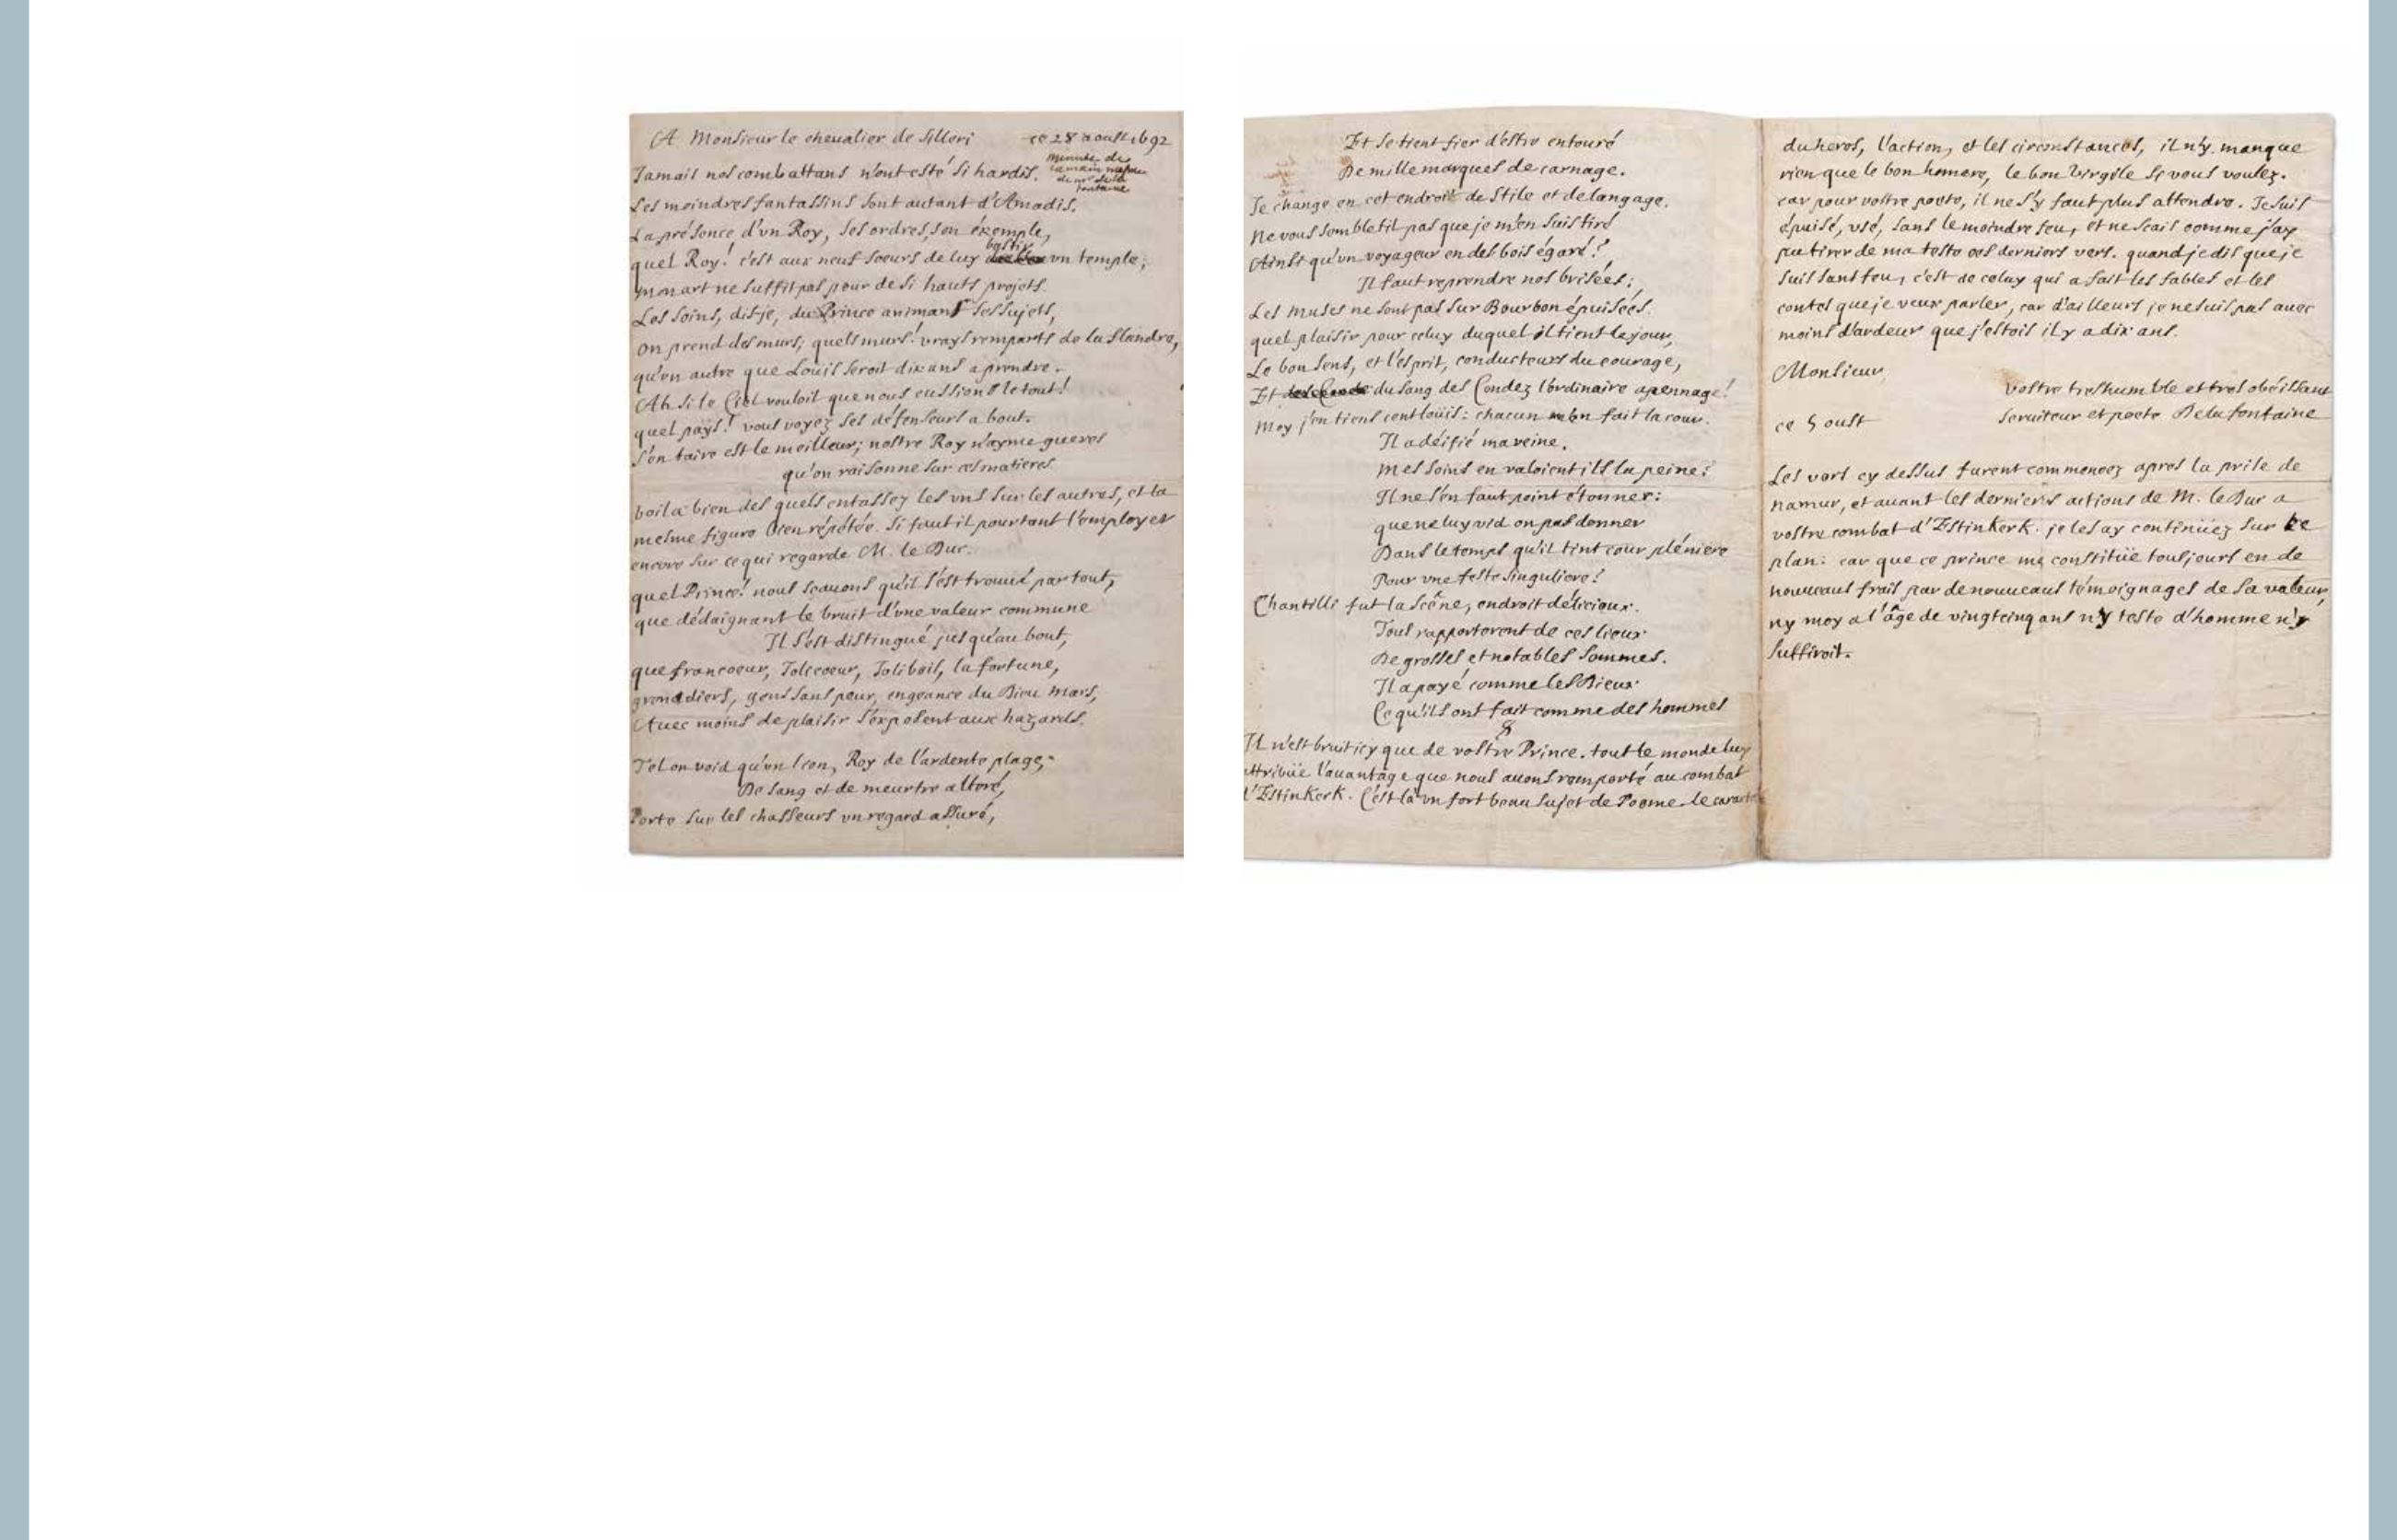 A Monsieur le chevalier de Silleri ce 28 aoust 1692
minute de
la main mesme
de mr de la
fontaine
Jamais nos combattans n'ont esté si hardis.
Les moindres fantassins sont autant d'Amadis.
La présence d'vn Roy, ses ordres, son éxemple,
bastir
quel Roy! c'est aux neuf soeurs de luy vn temple;
mon art ne suffit pas pour de si hauts projets.
Les soins, dis-je, du Prince animant ses sujets,
on prend des murs; quels murs! vrays remparts de la flandre,
qu'vn autre que Louis seroit dix ans a prendre.
Ah si le Ciel vouloit que nous eussions le tout!
quel païs! vous voyez ses défenseurs a bout.
s'en taire est le meilleur; nostre Roy n'ayme gueres
qu'on raisonne sur ces matieres.
voila bien des quels entassez les vns sur les autres, et la
mesme figure bien répétée. Si faut il pourtant l'employer
encore sur ce qui regarde M. le Duc.
quel Prince! nous scauons qu'il s'est trouué par tout,
que dédaignant le bruit d'vne valeur commune
Il s'est distingué jusqu'au bout,
que francoeur, Jolicoeur, Jolibois, la fortune,
grenadiers, gens sans peur, engeance du Dieu Mars,
Auec moins de plaisir s'exposent aux hazards.
Tel on void qu'vn lion, Roy de l'ardente plage,
De sang et de meurtre alteré,
Porte sur les chasseurs vn regard assuré,
Et se tient fier d'estre entouré
De mille marques de carnage.
Je change en cet endroit de stile et de langage.
Ne vous semble til pas que je m'en suis tiré
Ainsi qu'vn voyageur en des bois égaré?
Il faut reprendre nos brisées;
Les Muses ne sont pas sur Bourbon épuisées.
quel plaisir pour celuy duquel il tient le jour,
Le bon sens, et l'esprit, conducteurs du courage,
Et du sang des Condez l'ordinaire apennage!
Moy j'en tiens cent loüis: chacun m'en fait la cour.
Il a déifié ma veine.
Mes soins en valoient ils la peine?
Il ne s'en faut point étonner:
que ne luy vid on pas donner
Dans le temps qu'il tint cour pléniere
Pour vne feste singuliere!
Chantilli fut la scêne, endroit délicieux.
Tous rapporterent de ces lieux
De grosses et notables sommes.
Il a payé comme les Dieux
Ce qu'ils ont fait comme des hommes
Il n'est bruit icy que de vostre Prince. tout le monde luy
attribüe l'auantage que nous auons remporté au combat
d'Estinkerk. C'est là vn fort beau sujet de Poeme. le caractere
du heros, l'action, et les circonstances, il n'y manque
rien que le bon homere, le bon Virgile si vous voulez.
car pour vostre poete, il ne s'y faut plus attendre. Je suis
épuisé, vsé, sans le moindre feu, et ne scais comme j'ay
pu tirer de ma teste ces derniers vers. quand je dis que je
suis sans feu, c'est de celuy qui a fait les fables et les
contes que je veux parler, car d'ailleurs je ne suis pas auec
moins d'ardeur que j'estois il y a dix ans.
Monsieur,
vostre tres humble et tres obéissant
ce 5 oust serviteur et poete De la fontaine
Les vers cy dessus furent commencez apres la prise de
namur, et auant les dernieres actions de M. le Duc a
vostre combat d'Estinkerk. je les ay continüez sur ce
plan: car que ce prince me constitüe tousjours en de
nouueaux frais par de nouueaux témoignages de sa valeur,
ny moy a l'âge de vingt cinq ans n'y teste d'homme n'y
suffiroit.